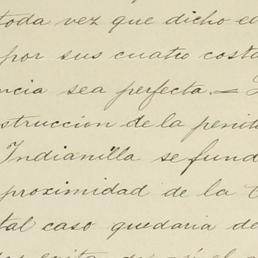 toda vez que dicho ed
por sus cuatro costa
ncia sea perfecta.=
strucción de la penit
Indianilla se fund
proximidad de la
tal caso quedaria de